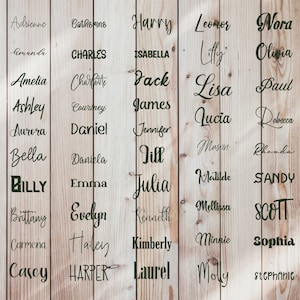 Adrienne
Amanda
Amelia
Ashley
Aurora
Bella
BILLY
Brittany
Carmena
Casey
Catherine
CHARLES
Charlotte
Courtney
Daniel
Daniela
Emma
Evelyn
Haley
HARPER
Harry
ISABELLA
Jack
James
Jennifer
Jill
Julia
Kenneth
Kimberly
Laurel
Leonor
Lilly
Lisa
Lucia
Mason
Matilde
Mellissa
Minnie
Molly
Nora
Olivia
Paul
Rebecca
Rhonda
SANDY
SCOTT
Sophia
STEPHANIE